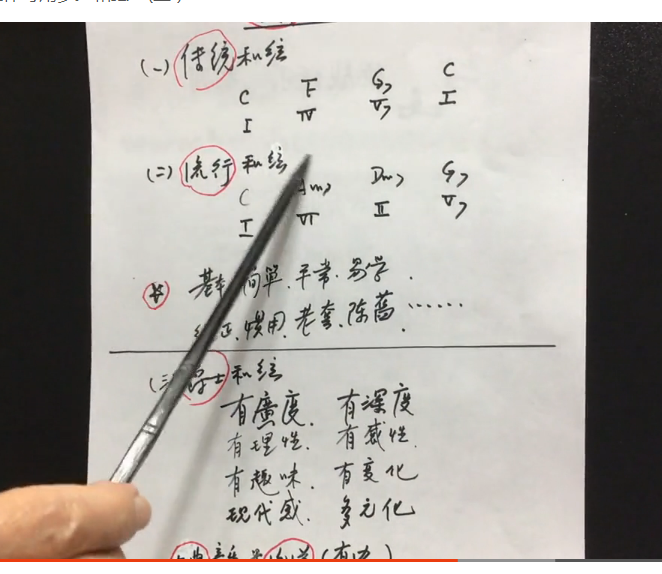 (一) 传统和弦
C F G7 C
I IV V7 I
(二) 流行和弦
C Am7 Dm7 G7
I VI II V7
基本 简單、平常、易学.
惯用、老套、陈舊 ……
(三) 爵士和弦
有廣度、有深度
有理性、有感性
有趣味、有变化
现代感、多元化